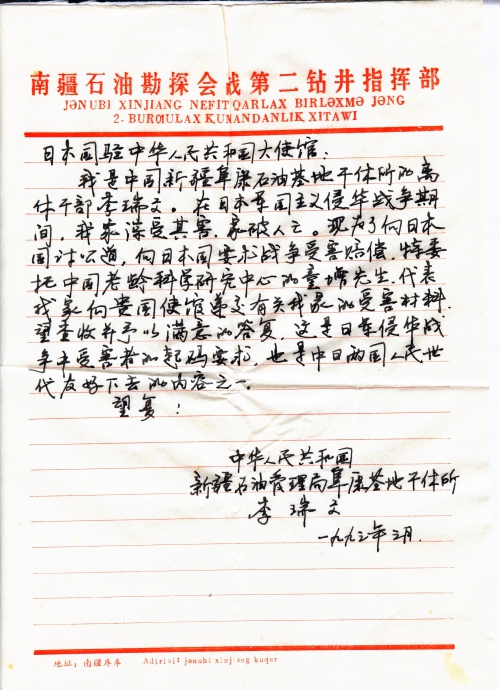 南疆石油勘探会战第二钻井指挥部
JƏNUBI XINJIANG NEFIT QARLAX BIRLƏXMƏ JƏNG
2-BURƢULAX KUMANDANLIK XITAWI
日本国驻中华人民共和国大使馆：
我是中国新疆阜康石油基地干休所的离
休干部李瑞文。在日本军国主义侵华战争期
间，我家深受其害，家破人亡。现为了向日本
国讨公道，向日本国要求战争受害赔偿，特委
托中国老龄科学研究中心的童增先生，代表
我家向贵国使馆递交有关我家的受害材料，
望查收并予以满意的答复，这是日军侵华战
争中受害者的起码要求，也是中日两国人民世
代友好下去的内容之一。
望复！
中华人民共和国
新疆石油管理局阜康基地干休所
李瑞文
一九九三年三月.
地址：南疆库车 Adirisi: jənubi xinjang kuqar